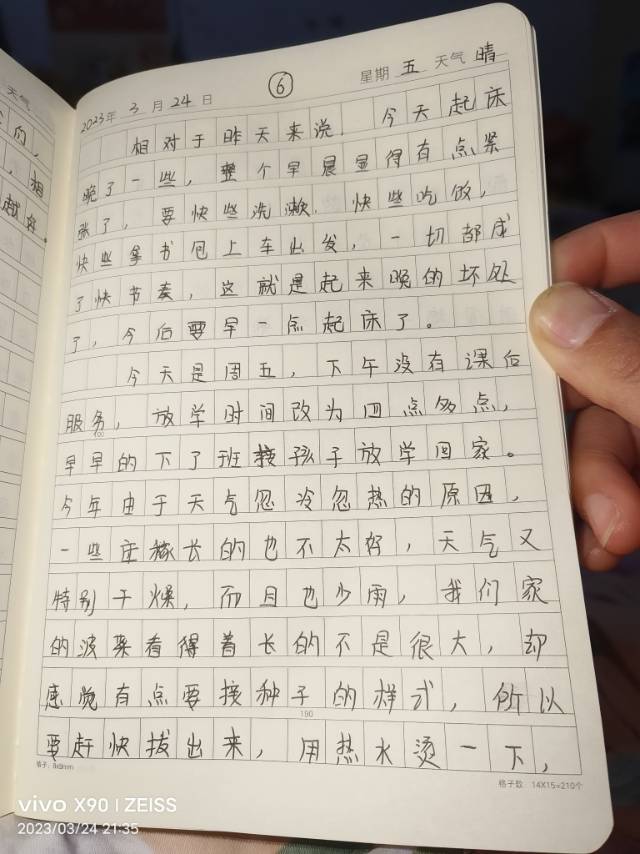 天气
的,
,相
越好.
2023年 3月 24日 ⑥ 星期 五 天气 晴
相对于昨天来说. 今天起床
晚了一些,整个早晨显得有点紧
张了,要快些洗漱.快些吃饭,
快些拿书包上车出发,一切都成
了快节奏,这就是起来晚的坏处
了,今后要早一点起床了。
今天是周五,下午没有课后
服务,放学时间改为四点多点,
100
早早的下了班接孩子放学回家。
今年由于天气忽冷忽热的原因,
一些庄稼长的也不太好,天气又
特别干燥,而且也少雨,我们家
的菠菜看得着长的不是很大,却
感觉有点要接种子的样式,所以
190
要赶快拔出来,用热水烫一下,
格子:8x8mm
格子数:14X15=210个
vivo X90 | ZEISS
2023/03/24 21:35